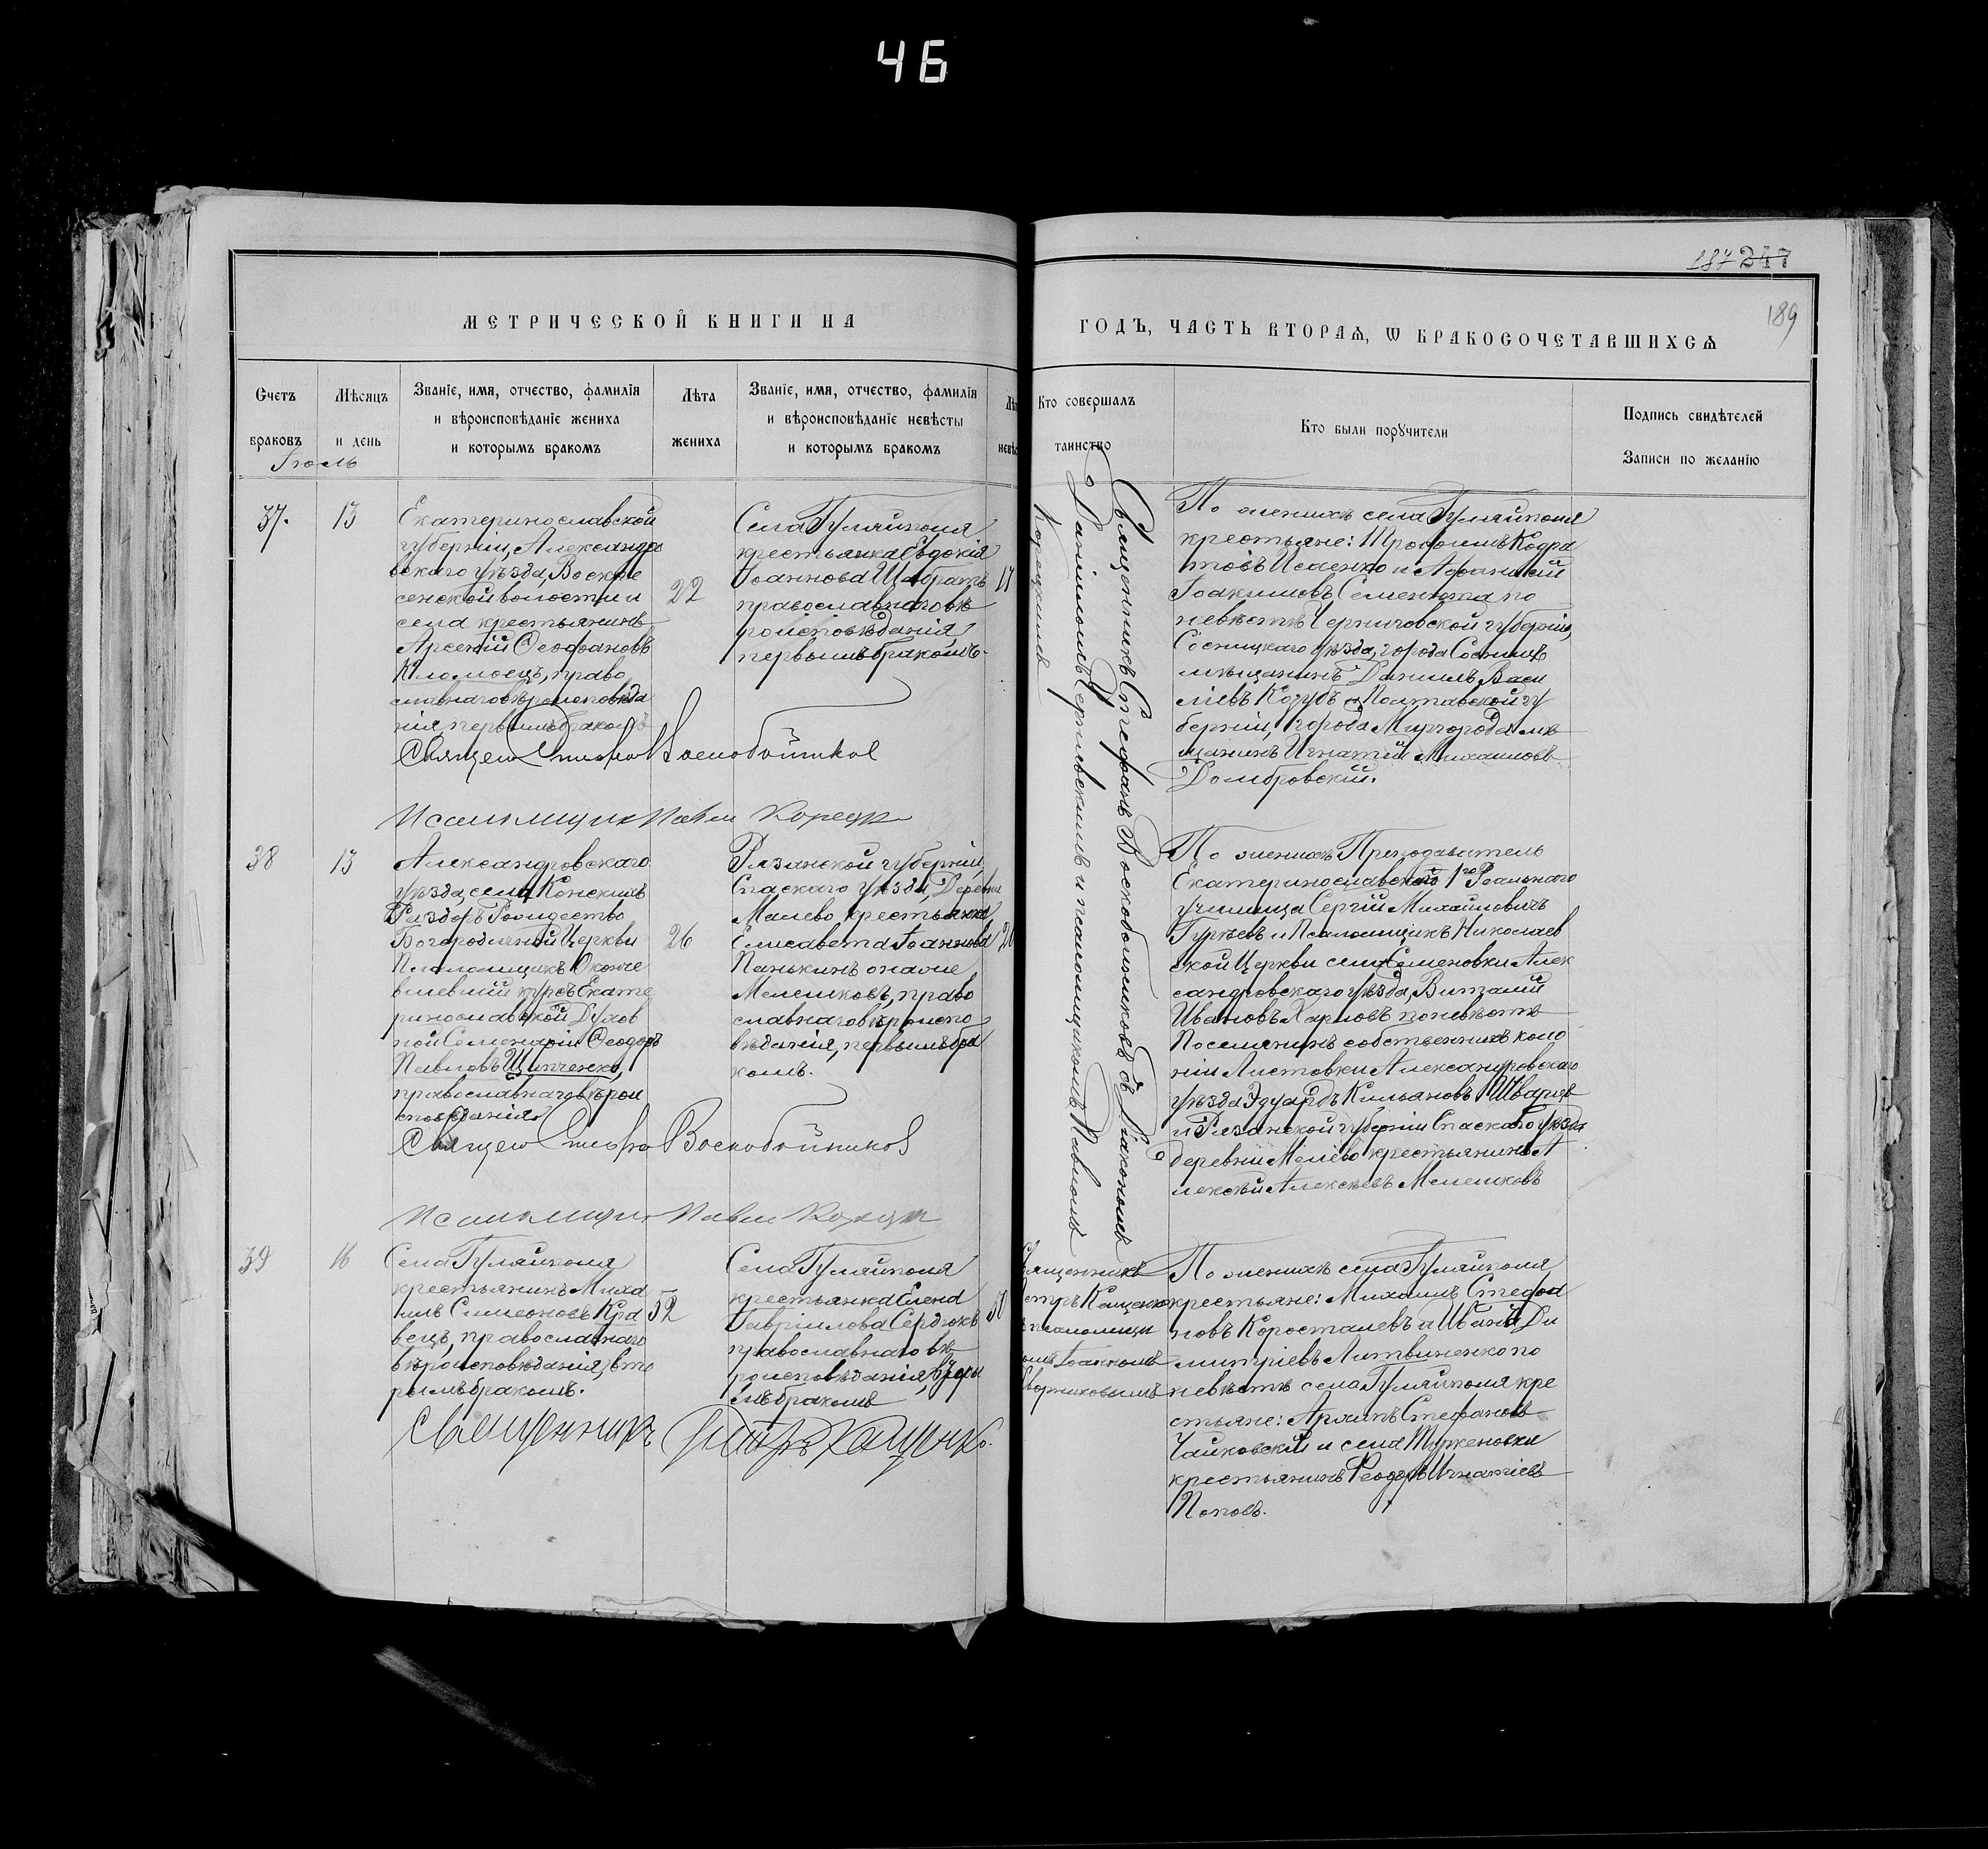 46
187 247
189
МЕТРИЧЕСКОЙ КНИГИ НА
ГОДЪ, ЧАСТЬ ВТОРАѦ, Ѡ БРАКОСОЧЕТАВШИХСѦ
Счетъ браковъ
Мѣсяцъ и день
Званїе, имя, отчество, фамилїя
и вѣроисповѣданїе жениха
и которымъ бракомъ
Лѣта жениха
Званїе, имя, отчество, фамилїя
и вѣроисповѣданїе невѣсты
и которымъ бракомъ
Кто совершалъ таинство
Кто были порꙋчители
Подпись свидѣтелей
Записи по желанїю
Іюль
37.
13
Екатеринославской
губерніи, Александро
вскаго уѣзда, Воскре
сенской волости и
села крестьянинъ
Арсеній Ѳеофановъ
православнаго вѣроисповѣда
нія, первымъ бракомъ
22
Села Гуляйполя
крестьянка Евдокія
Іоаннова Щабратъ
православнаго вѣ
роисповѣданія,
первымъ бракомъ.
17
Священникъ Стефанъ Воскобойниковъ съ Діакономъ
Даниломъ и псаломщикомъ Павломъ
Корецкимъ
По женихѣ села Гуляйполя
крестьяне: Трофимъ Кодра
товъ Исаенко и Афанасій
Іоакимовъ Семенюта по
невѣстѣ Черниговской губерніи,
Сосницкаго уѣзда, города Сосницы
мѣщанинъ Даніилъ Васи
ліевъ Козубъ и Полтавской гу
берніи, города Миргорода мѣ
щанинъ Игнатій Михаиловъ
Домбровскій.
Священ Стефан Воскобойников
Псаломщик Павел Корецк
38
13
Александровскаго
уѣзда, села Конскихъ
Раздоръ Рождество
Богородичной Церкви
Псаломщикъ Окончи
вшій курсъ Екате
ринославской Духов
ной Семинаріи Ѳеодоръ
Павловъ Щипченко,
православнаго вѣрои
сповѣданія
26
Рязанской губерніи,
Спаскаго уѣзда, Деревни
Малево, крестьянка
Елисавета Іоаннова
Панькинъ она же
Мелешковъ, право
славнаго вѣроиспо
вѣданія, первымъ бра
комъ.
По женихѣ Преподаватель
Екатеринославскаго 1го Реальнаго
училища Сергій Михайловичъ
Гурѣевъ и Псаломщикъ Николаев
ской Церкви села Семеновки Алек
сандровскаго уѣзда, Виталій
Ивановъ Харловъ по невѣстѣ
Поселянинъ собственникъ коло
ніи Листовки Александровскаго
уѣзда Эдуардъ Кильановъ Шварцъ
и Рязанской губерніи Спаскаго уѣзда
деревни Мелево крестьянинъ А
лексѣй Алексѣевъ Мелешковъ
Священ Стефан Воскобойников
Псаломщик Павел Корецк
39
16
Села Гуляйполя
крестьянинъ Миха
илъ Симеоновъ Кра
вецъ, православнаго
вѣроисповѣданія, вто
рымъ бракомъ.
52
Села Гуляйполя
крестьянка Елена
Гавріилова Сердюкъ
православнаго вѣ
роисповѣданія, вторы
мъ бракомъ
Священникъ
Петръ Кащенко
псаломщи
комъ Іоанномъ
По женихѣ села Гуляйполя
крестьяне: Михаилъ Стефа
новъ Коросталевъ и Иванъ Ди
митріевъ Литвиненко по
невѣстѣ села Гуляйполя кре
стьяне: Архипъ Стефановъ
Чайковскій и села Туркеновки
крестьянинъ Ѳеодоръ Игнатіевъ
Поповъ.
Священникъ Петръ Кащенко.